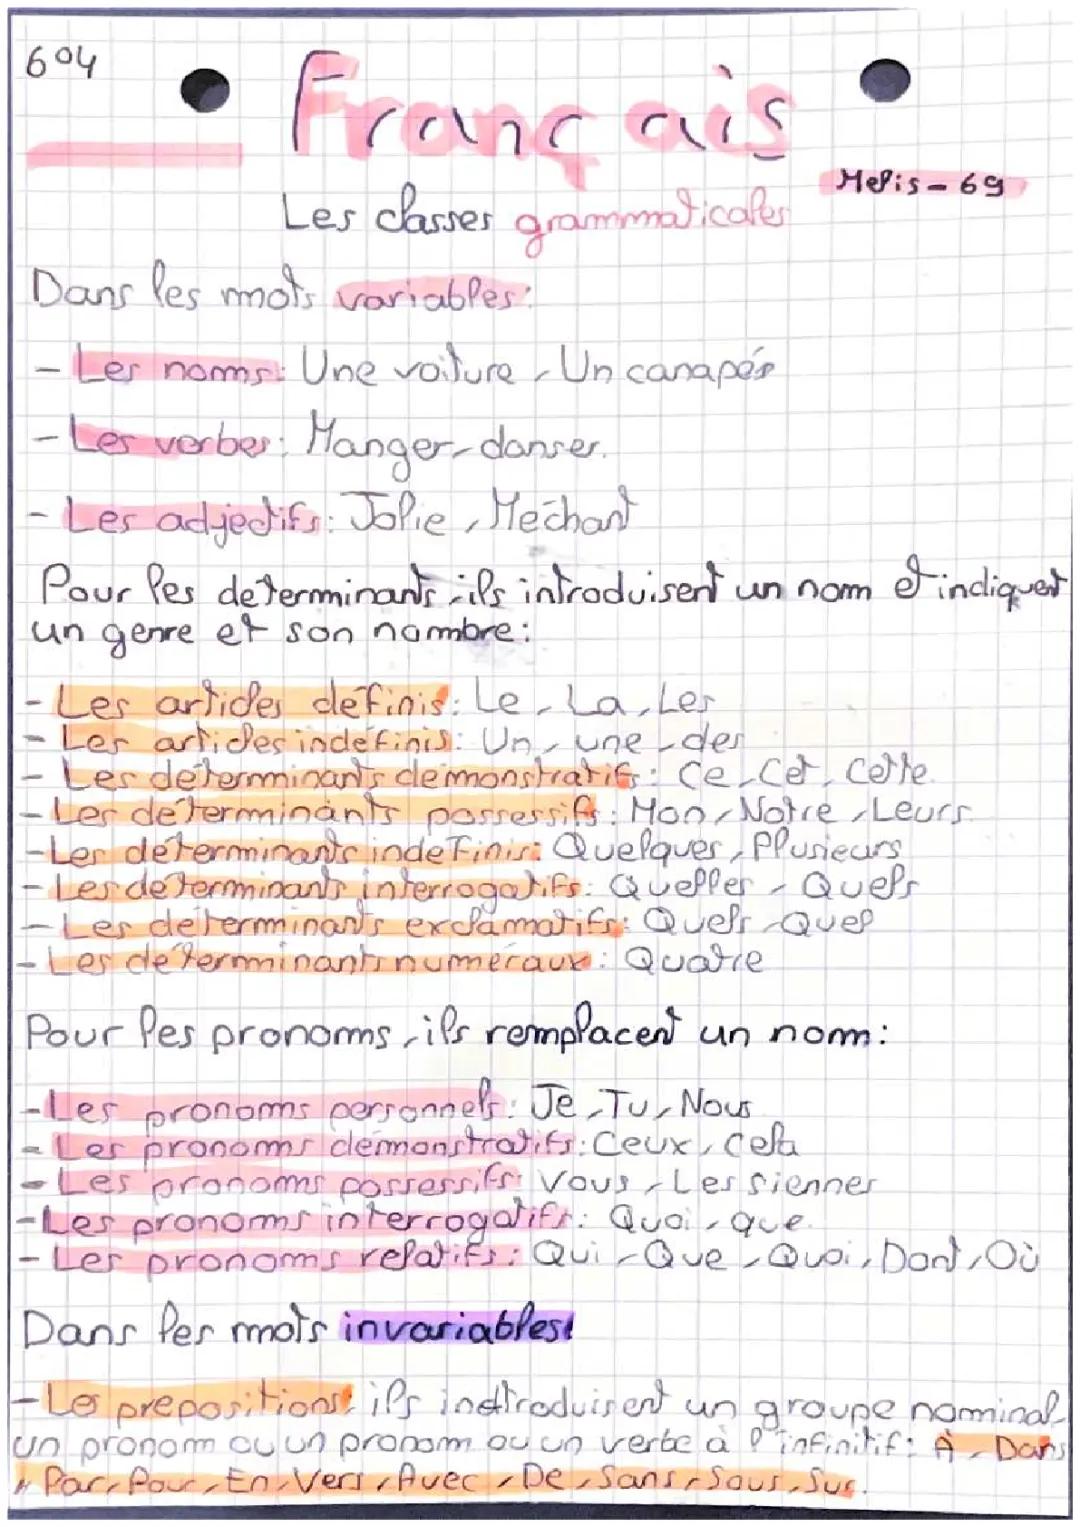 604
Français
Melis-69
Les classes grammaticales
Dans les mots variables:
- Les noms: Une voiture, Un canapés
- Les verbes: Manger, danser.
- Les adjectifs: Jolie, Méchant
Pour les determinants, ils introduisent un nom et indiquent
un genre et son nombre:
- Les articles définis: Le, La, Les
- Les articles indéfinis: Un, une, des
- Les déterminants démonstratifs: Ce, Cet, Cette.
- Les déterminants possessifs: Mon, Notre, Leurs
- Les déterminants indeFinis: Quelques, Plusieurs
- Les déterminants interrogatifs: Quelles, Quels
- Les déterminants exclamatifs: Quels, Quel
- Les déterminants numéraux: Quatre
Pour les pronoms, ils remplacent un nom:
- Les pronoms personnels: Je, Tu, Nous
- Les pronoms démonstratifs: Ceux, Cela
- Les pronoms possessifs: Vous, Les siennes
- Les pronoms interrogatifs: Quoi, que.
- Les pronoms relatifs: Qui, Que, Quoi, Dont, Où
Dans les mots invariables:
- Les prepositions: ils indtroduisent un groupe nominal,
un pronom ou un pronom ou un verbe à l'infinitif: À, Dans
, Par, Pour, En, Vers, Avec, De, Sans, Sous, Sur.